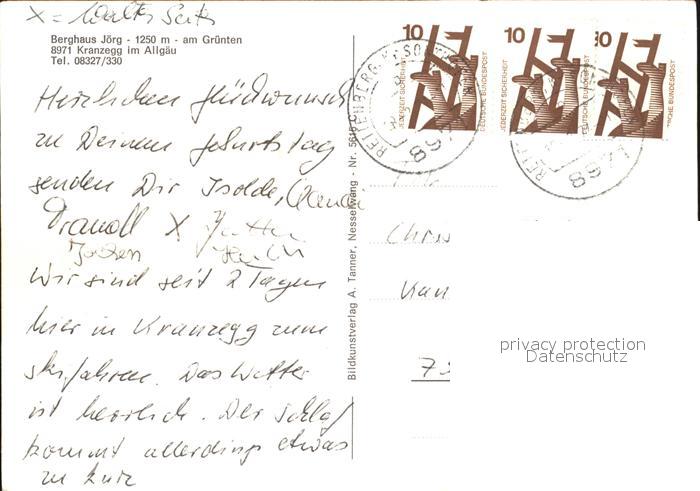 X = Walter Seitz
Berghaus Jörg - 1250 m - am Grünten
8971 Kranzegg im Allgäu
Tel. 08327/330
Herzlichen Glückwunsch
zu Deinem Geburtstag
senden Dir Isolde,
X
Jochen
Wir sind seit 2 Tagen
hier in Kranzegg zum
skifahren. Das Wetter
ist herrlich. Der Schlaf
kommt allerdings etwas
zu kurz
Bildkunstverlag A. Tanner, Nesselwang - Nr.
10
JEDERZEIT SICHERHEIT
DEUTSCHE BUNDESPOST
10
JEDERZEIT SICHERHEIT
DEUTSCHE BUNDESPOST
DEUTSCHE BUNDESPOST
8971
8971
Chris
privacy protection
Datenschutz